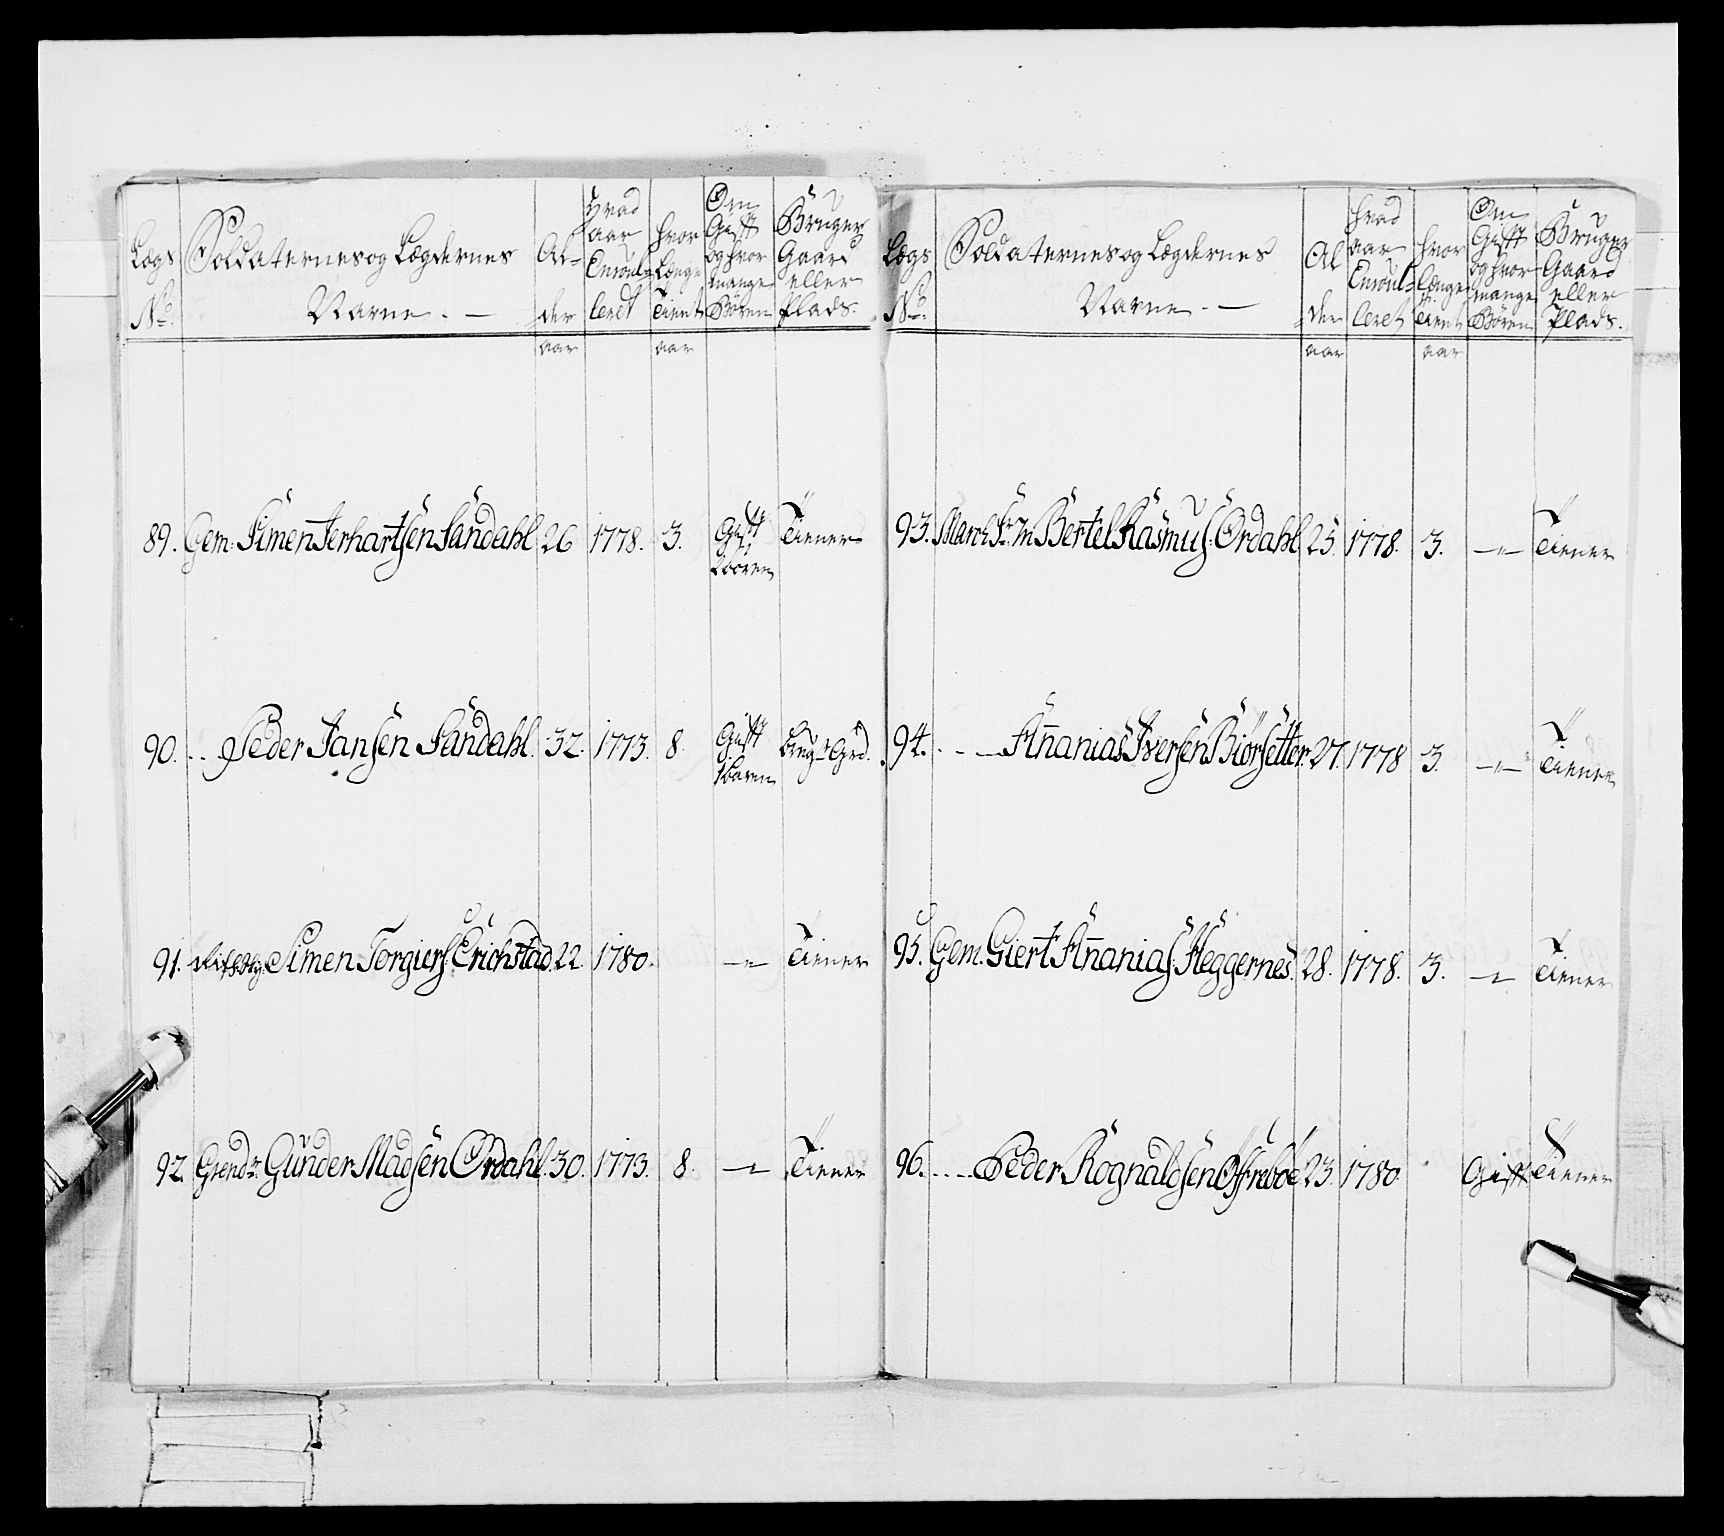 Legs No. Soldaternes og Lægdernes Navne. — Al=der aar hvad aar Enroul=leret hvor Længe Tient aar Om Gifft og hvor mange Börn Bruger Gaard eller Plads.
89. Gem: Simen Jerhartsen Sandahl 26 1778. 3. Gift 2 boren Tiener
90. .. Peder Jansen Sandahl. 32. 1773. 8. Gifft 1 boren Brug: Grd.
91. Simen Torgiers: Erichstad 22. 1780. —"— Tiener
92. Grend:r Gunder Madsen Ordahl. 30. 1773. 8. —"— Tiener
Lægs No. Soldaternes og Lægdernes Navne. — Al=der aar hvad aar Enroul=leret hvor Længe Tient aar Om Gifft og hvor mange Börn Bruger Gaard eller Plads.
93. Bertel Rasmus: Ordahl 25. 1778. 3. —"— Tiener
94. . - — Ananias Iversen Biörsetter. 27. 1778 3. —"— Tiener
95. Gem. Giert Ananias: Heggernes. 28. 1778. 3. —"— Tiener
96. ... — Peder Rognaldsen 23. 1780. Gift Tiener